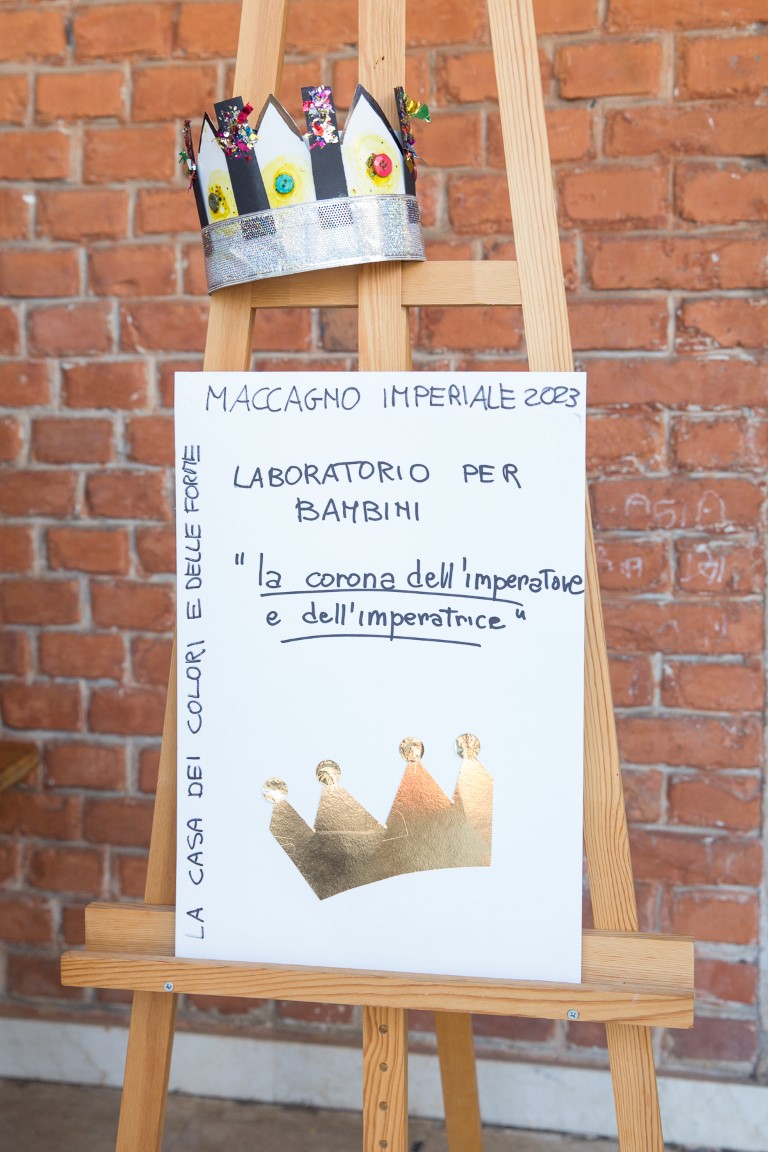 MACCAGNO IMPERIALE 2023
LABORATORIO PER
BAMBINI
"la corona dell'imperatore
e dell'imperatrice"
LA CASA DEI COLORI E DELLE FORME
ASIA